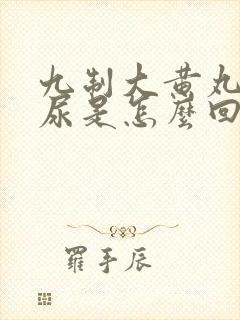 九制大黄丸
尿是怎麼回
羅手辰